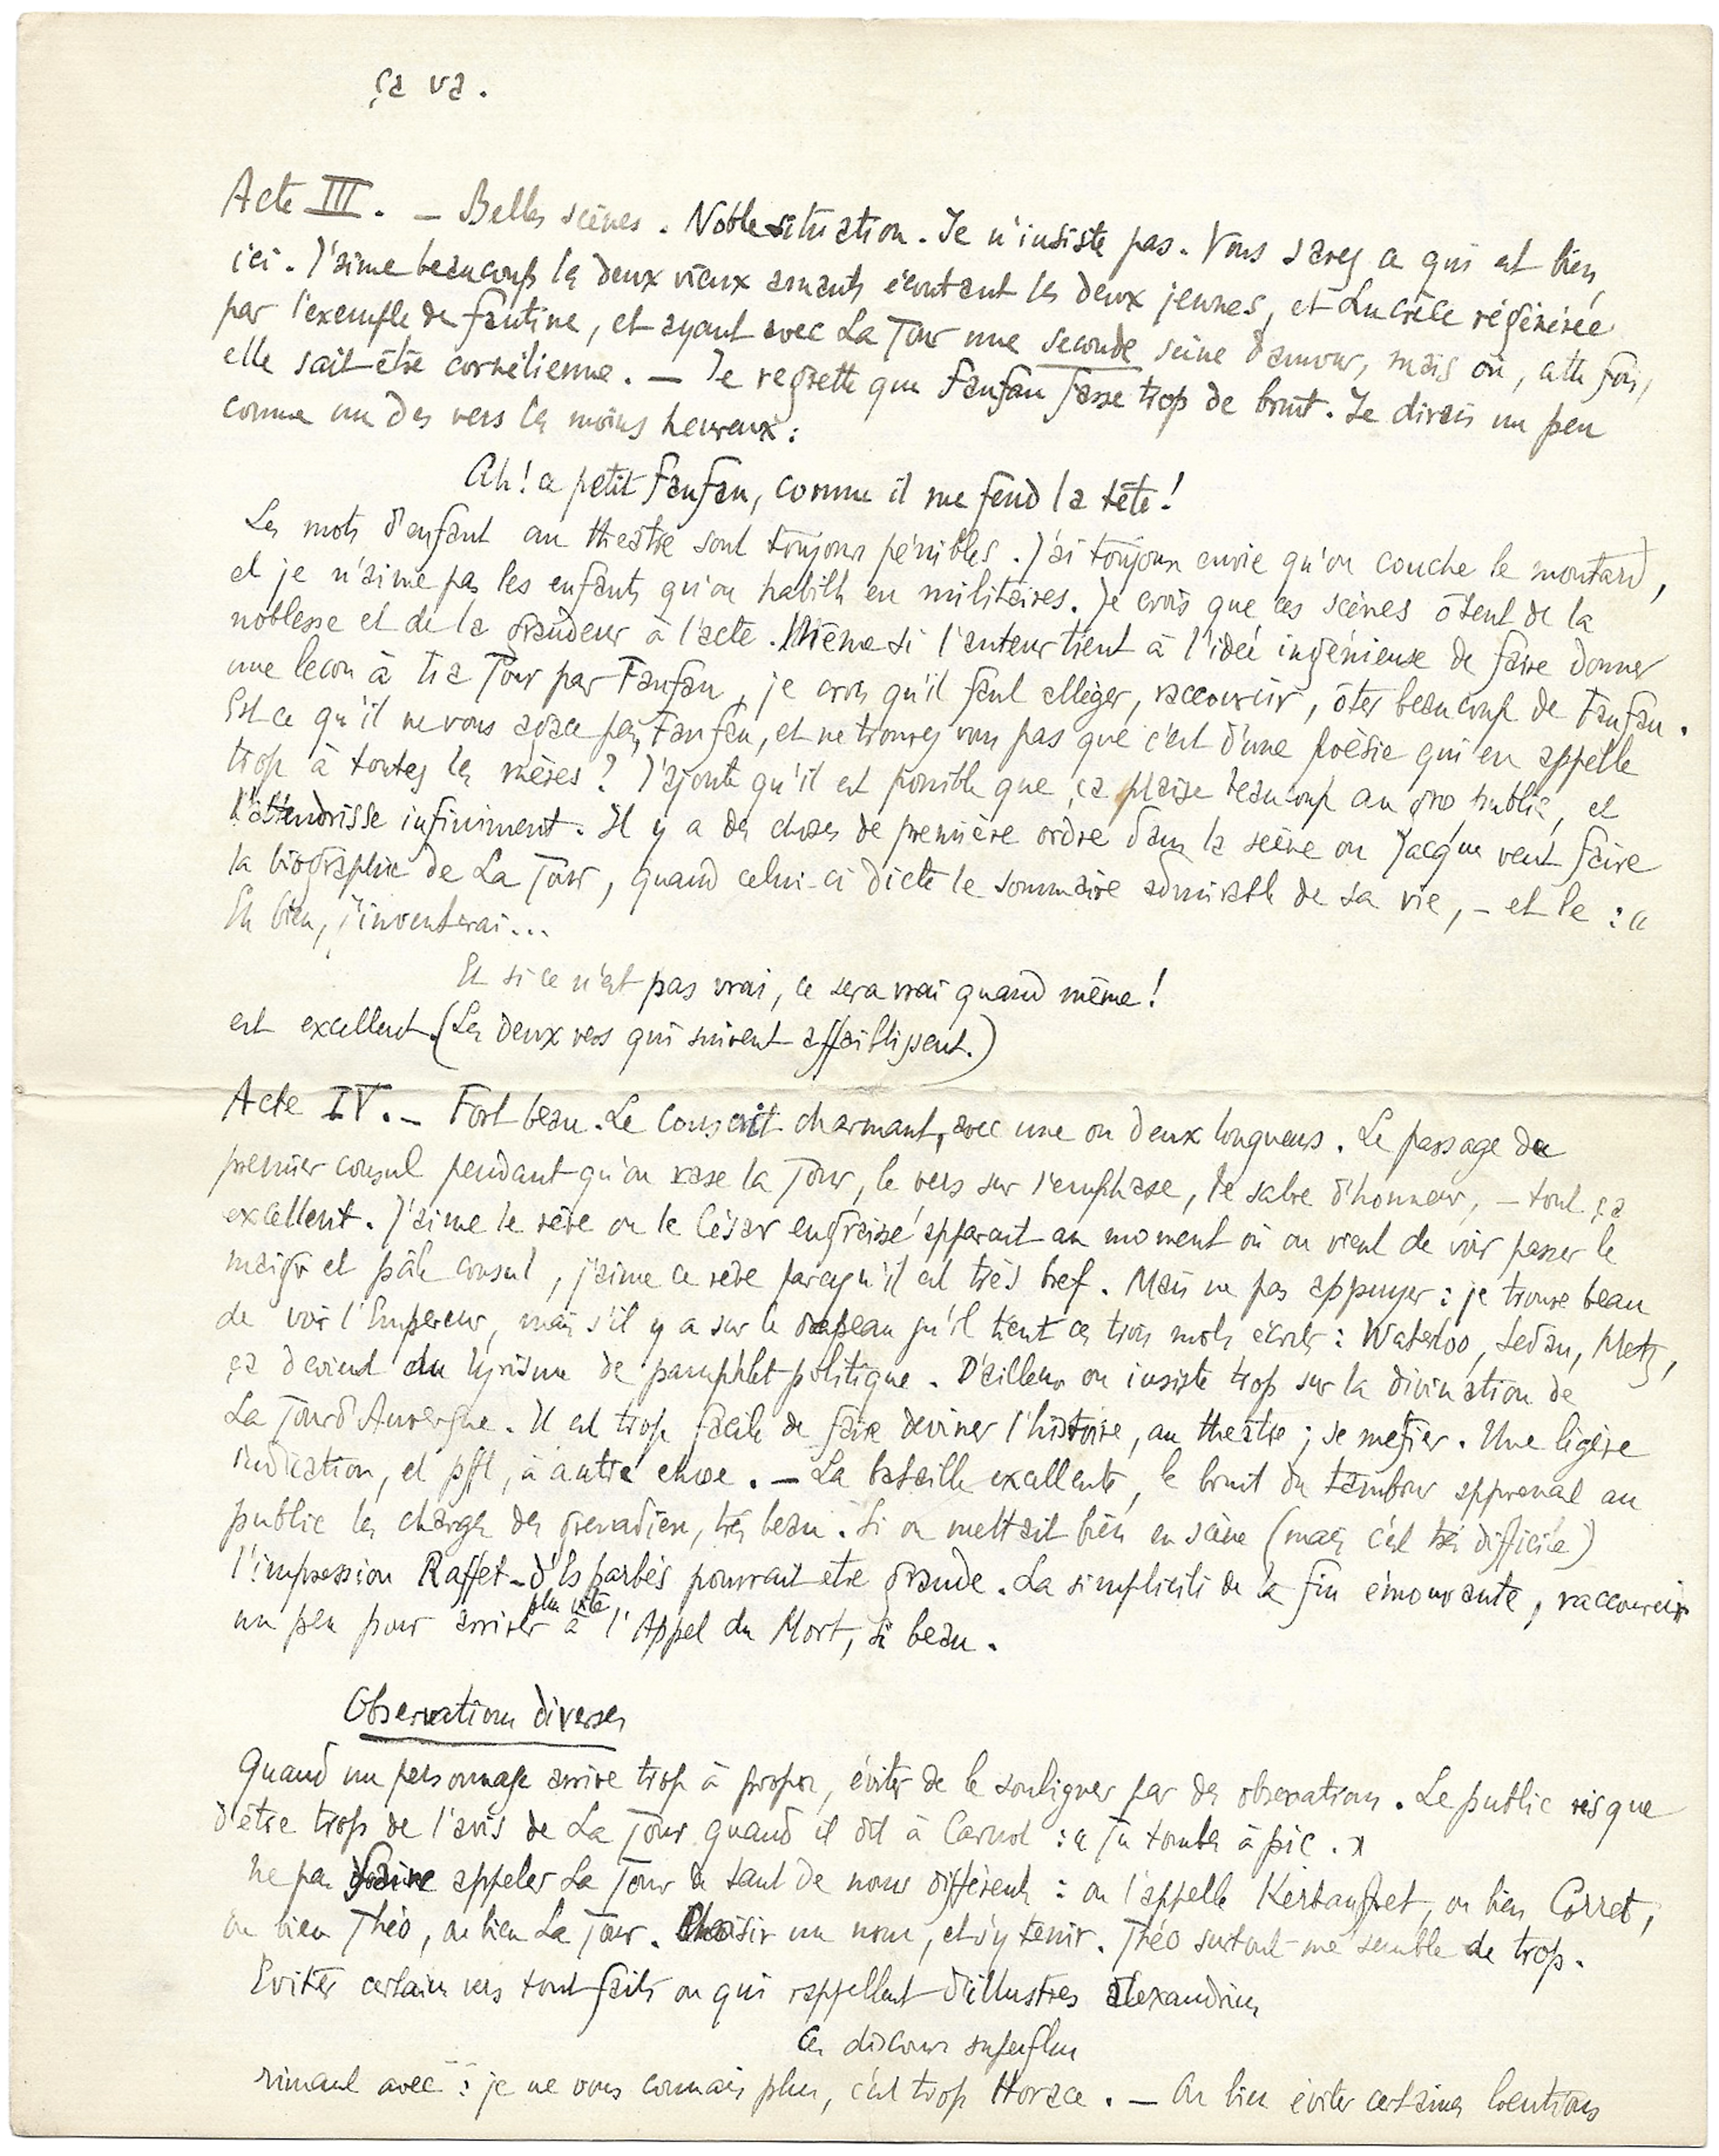 ça va.
Acte III. — Belles scènes. Noble situation. Je n'insiste pas. Vous savez ce qui est bien,
ici. J'aime beaucoup les deux vieux amants écoutant les deux jeunes, et Lucrèce régénérée
par l'exemple de Fantine, et ayant avec La Tour une seconde scène d'amour, mais où, cette fois,
elle sait être cornélienne. — Je regrette que Fanfan fasse trop de bruit. Je dirais un peu
comme un des vers les moins heureux :
Ah ! ce petit Fanfan, comme il me fend la tête !
Les mots d'enfant au theâtre sont toujours pénibles. J'ai toujours envie qu'on couche le moutard,
et je n'aime pas les enfants qu'on habille en militaires. Je crois que ces scènes ôtent de la
noblesse et de la grandeur à l'acte. Même si l'auteur tient à l'idée ingénieuse de faire donner
une lecon à La Tour par Fanfan, je crois qu'il faut alléger, raccourcir, ôter beaucoup de Fanfan.
Est ce qu'il ne vous agace pas, Fanfan, et ne trouvez vous pas que c'est d'une poèsie qui en appelle
trop à toutes les mères ? J'ajoute qu'il est possible que ça plaise beaucoup au gros public, et
l'attendrisse infiniment. Il y a des choses de première ordre dans la scène ou Jacques veut faire
la biographie de La Tour, quand celui-ci dicte le sommaire admirable de sa vie, — et le : «
Eh bien, j'inventerai...
Et si ce n'est pas vrai, ce sera vrai quand même !
est excellent. (Les deux vers qui suivent affaiblissent.)
Acte IV. — Fort beau. Le conscrit charmant, avec une ou deux longueurs. Le passage du
premier consul pendant qu'on rase la Tour, le vers sur l'emphase, le sabre d'honneur, — tout ça
excellent. J'aime le rêve ou le César engraissé apparait au moment où on vient de voir passer le
maigre et pâle consul, j'aime ce rêve parcequ'il est très bref. Mais ne pas appuyer : je trouve beau
de voir l'Empereur, mais s'il y a sur le drapeau qu'il tient ces trois mots écrits : Waterloo, Sedan, Metz,
ça devient du lyrisme de pamphlet politique. D'ailleurs on insiste trop sur la divination de
La Tour d'Auvergne. Il est trop facile de faire deviner l'histoire, au theâtre ; se mefier. Une légère
indication, et pfft, à autre chose. — La bataille excellente, le bruit du tambour apprenant au
public les charges des grenadiers, très beau. Si on mettait bien en scène (mais c'est très difficile)
l'impression Raffet – d'Esparbès pourrait etre grande. La simplicité de la fin émouvante, raccourcir
un peu pour arriver plus vite à l'Appel du Mort, si beau.
Observations diverses
Quand un personnage arrive trop à propos, éviter de le souligner par des observations. Le public risque
d'être trop de l'avis de La Tour quand il dit à Carnot : « Tu tombes à pic. »
Ne pas faire appeler La Tour de tant de noms différents : on l'appelle Kerbauffret, ou bien Corret,
ou bien Théo, ou bien La Tour. Choisir un nom, et s'y tenir. Théo surtout me semble de trop.
Eviter certains vers tout faits ou qui rappellent d'illustres alexandrins
Ces discours superflus
rimant avec : je ne vous connais plus, c'est trop Horace. — Ou bien éviter certaines locutions